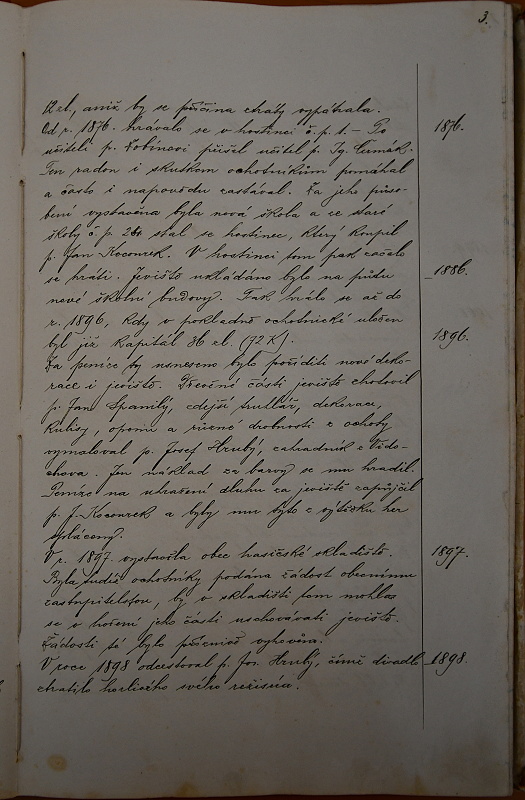 3.
12 zl., aniž by se příčina ztráty vypátrala.
Od r. 1876. hrávalo se v hostinci č. p. 1. – Po
1876.
učiteli p. Vobinovi přišel učitel p. Ig. Čumák.
Ten radou i skutkem ochotníkům pomáhal
a často i napovědu zastával. Za jeho půso-
bení vystavěna byla nová škola a ze staré
školy č. p. 26 stal se hostinec, který koupil
p. Jan Kocourek. V hostinci tom pak začalo
se hráti. Jeviště ukládáno bylo na půdu
1886.
nové školní budovy. Tak hrálo se až do
r. 1896, kdy v pokladně ochotnické uložen
byl již kapitál 36 zl. (72 K).
1896.
Za peníze ty usneseno bylo poříditi nové deko-
race i jeviště. Dřevěné části jeviště zhotovil
p. Jan Spanilý, zdejší truhlář, dekorace,
kulisy, oponu a různé drobnosti z ochoty
vymaloval p. Josef Hrubý, zahradník z Vido-
chova. Jen náklad za barvy se mu hradil.
Peníze na uhražení dluhu za jeviště zapůjčil
p. J. Kocourek a byly mu tyto z výtěžku her
spláceny.
V r. 1897. vystavěla obec hasičské skladiště.
1897.
Byla tudíž ochotníky podána žádost obecnímu
zastupitelstvu, by v skladišti tom mohlo
se v hoření jeho části uschovávati jeviště.
Žádosti té bylo příznivě vyhověno.
V roce 1898 odcestoval p. Jos. Hrubý, čímž divadlo
1898.
ztratilo horlivého svého režiséra.